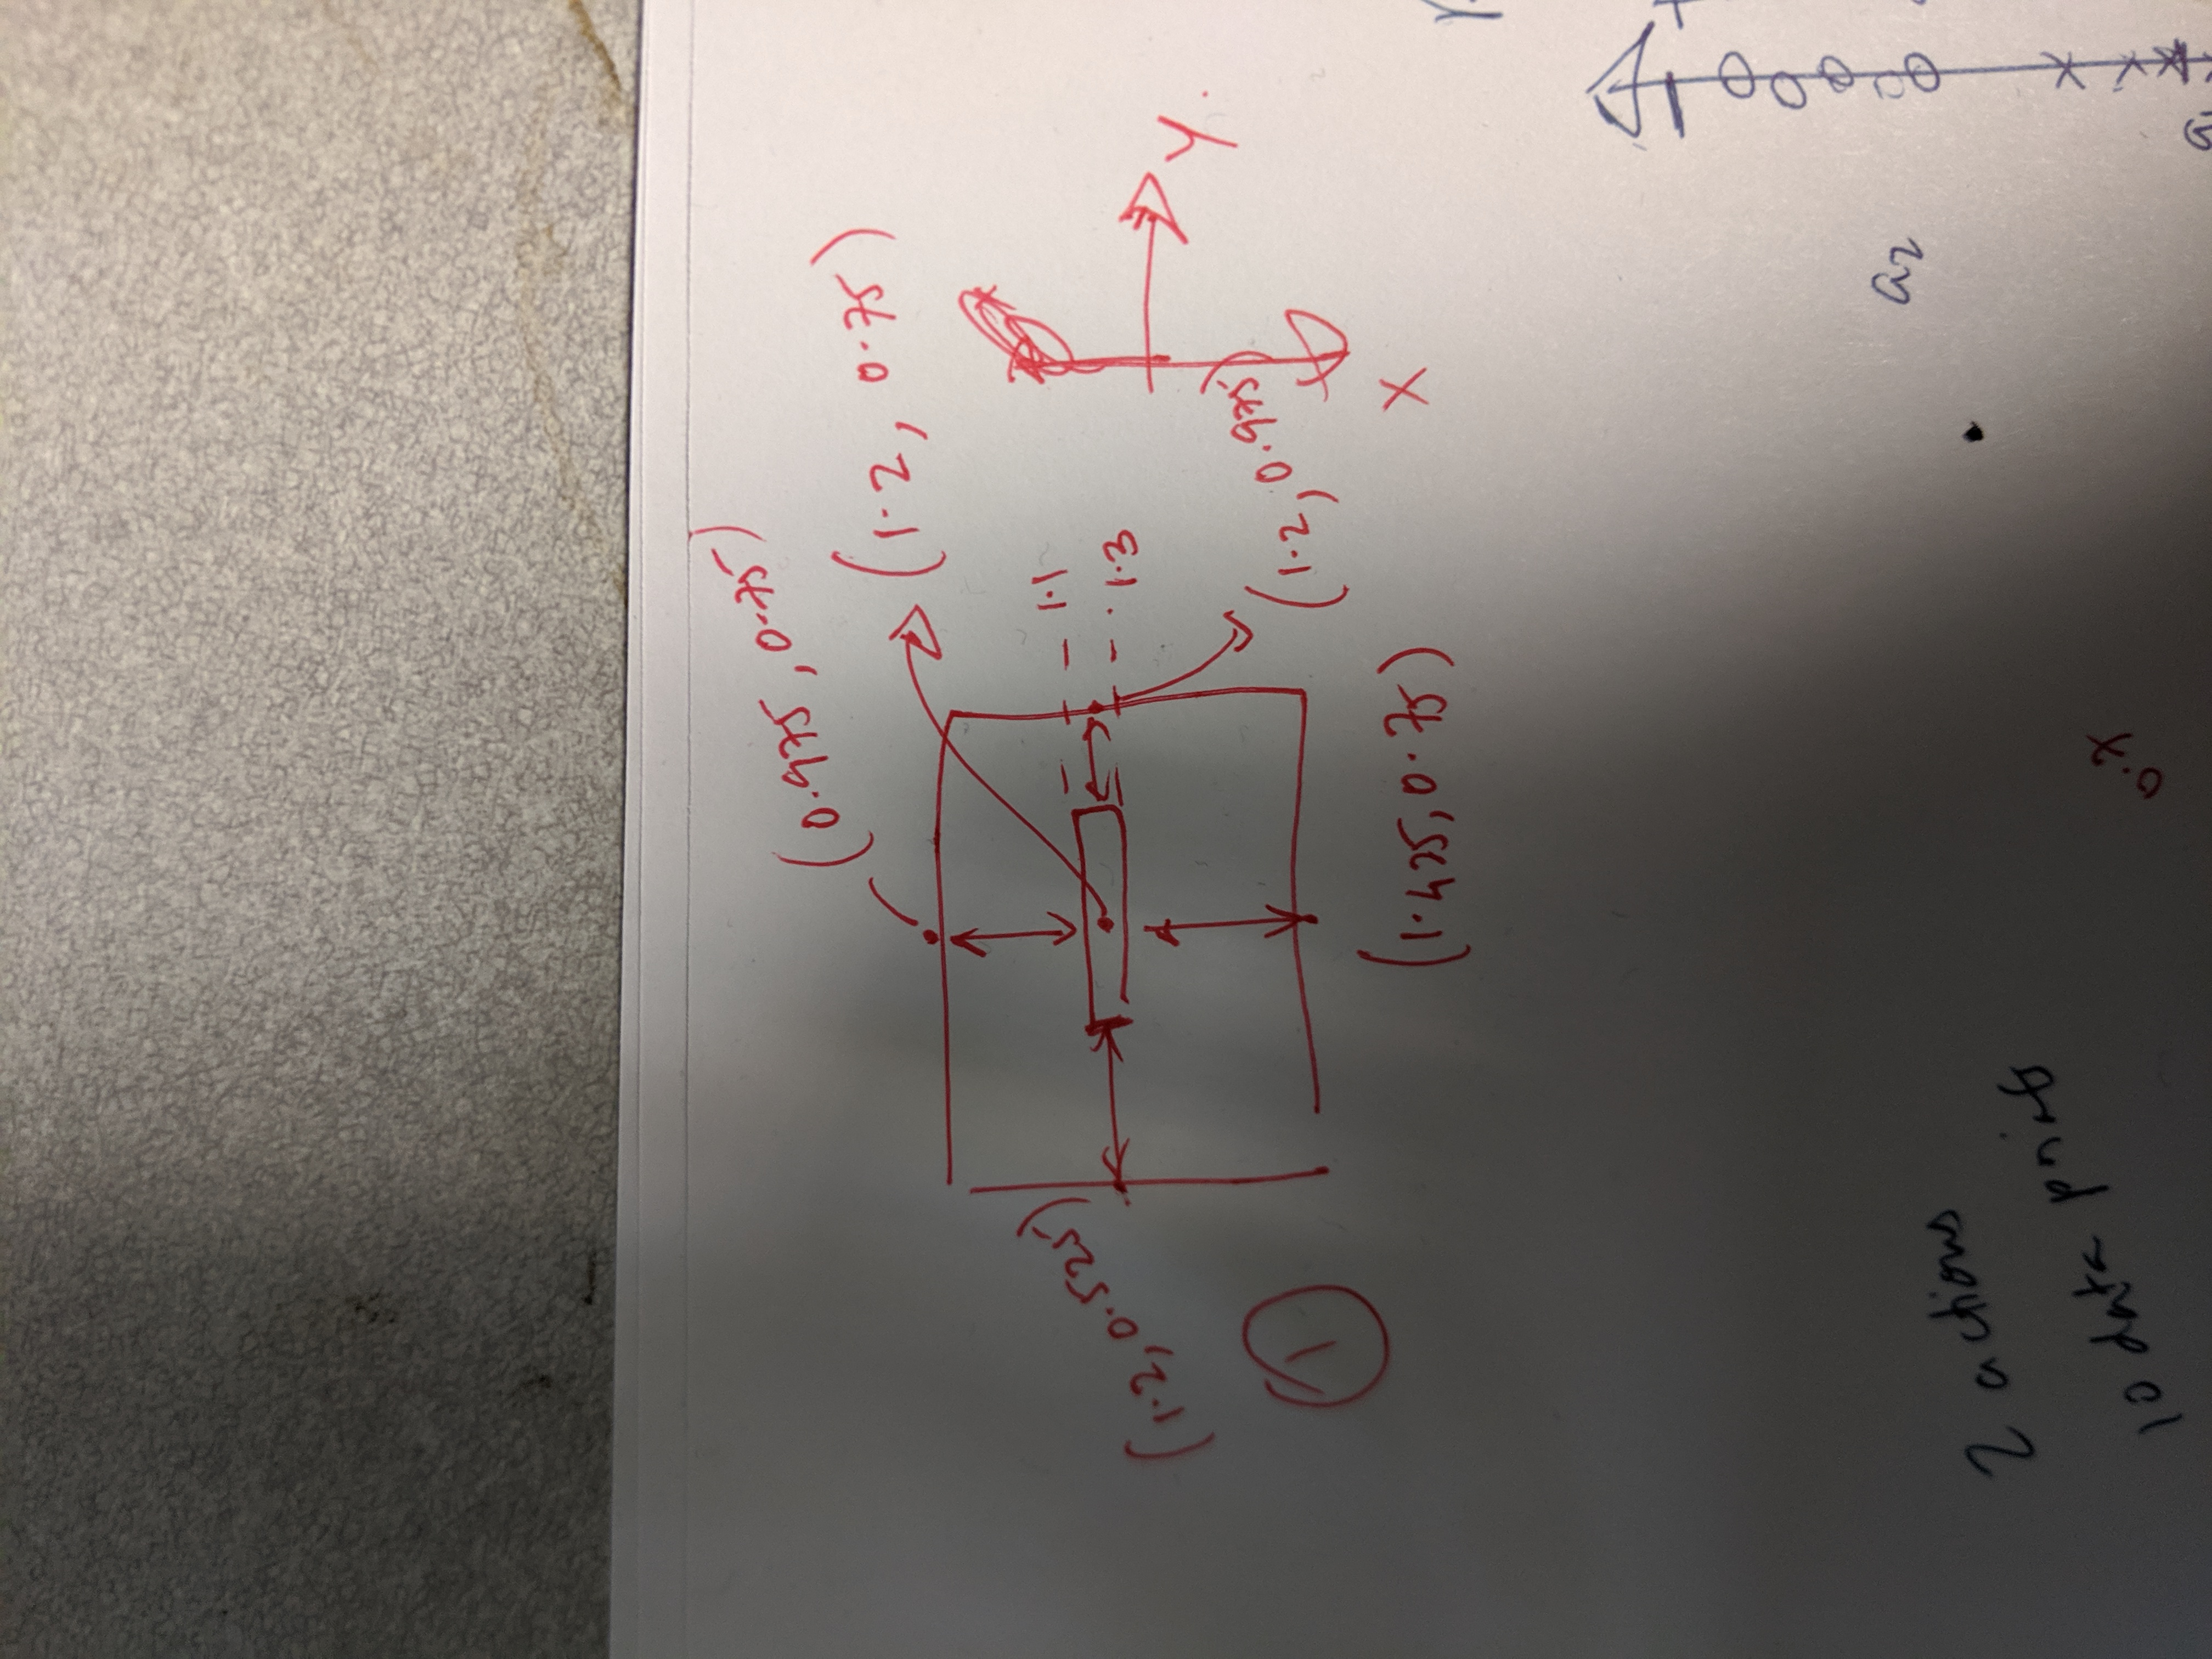 (0.975, 0.75)
(1.2, 0.75)
1.1
(1.2, 0.525)
1.3
Y.
(1.2, 0.975)
1
(1.425, 0.75)
X
a2
2 actions
10 data points
0.7